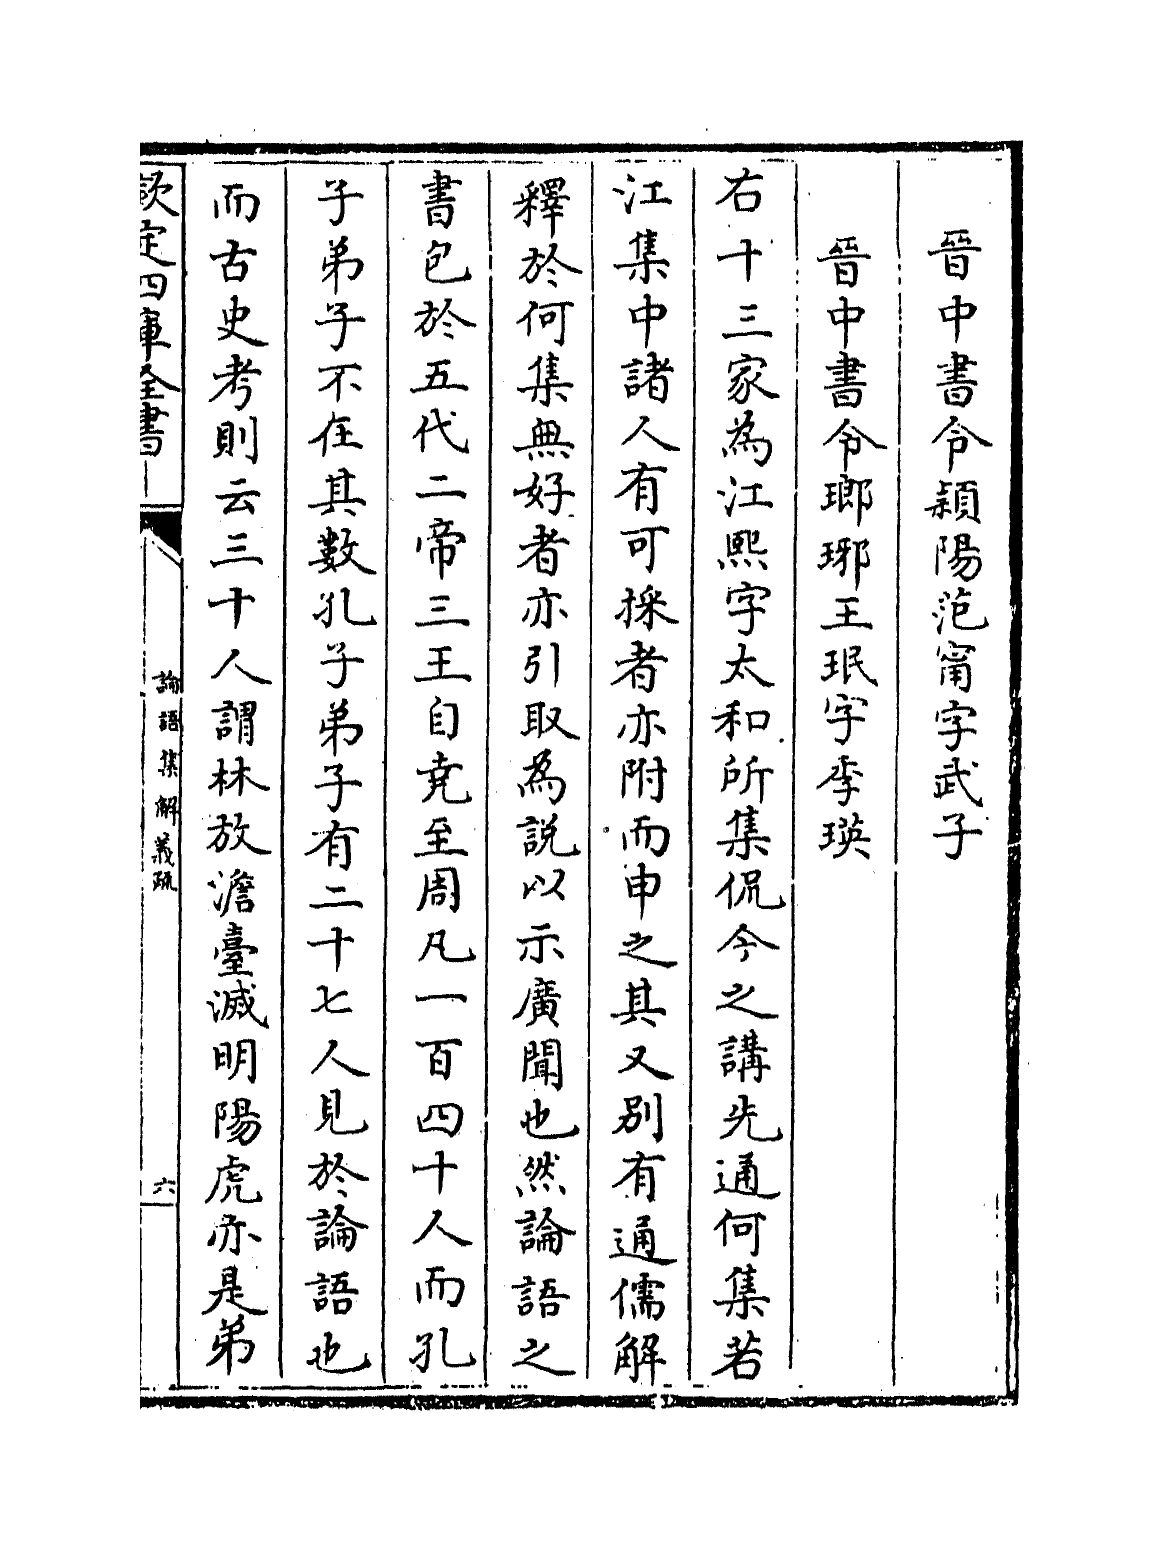 晉中書令潁陽范甯字武子
晉中書令瑯琊王珉字季瑛
右十三家為江熙字太和所集侃今之講先通何集若
江集中諸人有可採者亦附而申之其又別有通儒解
釋於何集無好者亦引取為說以示廣聞也然論語之
書包於五代二帝三王自堯至周凡一百四十人而孔
子弟子不在其數孔子弟子有二十七人見於論語也
而古史考則云三十人謂林放澹臺滅明陽虎亦是弟
欽定四庫全書
論語集解義疏
六